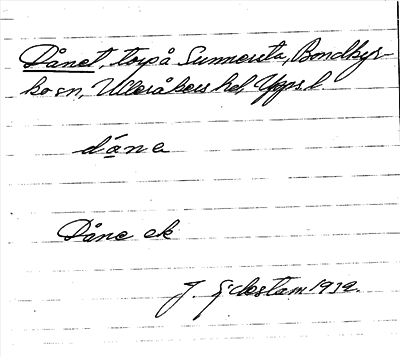 Dånet, torp å Sunnersta, Bondkyr-
ko sn, Ulleråkers hd, Upps. l.
dåne
Dåne ek
J. Gidestam 1919.